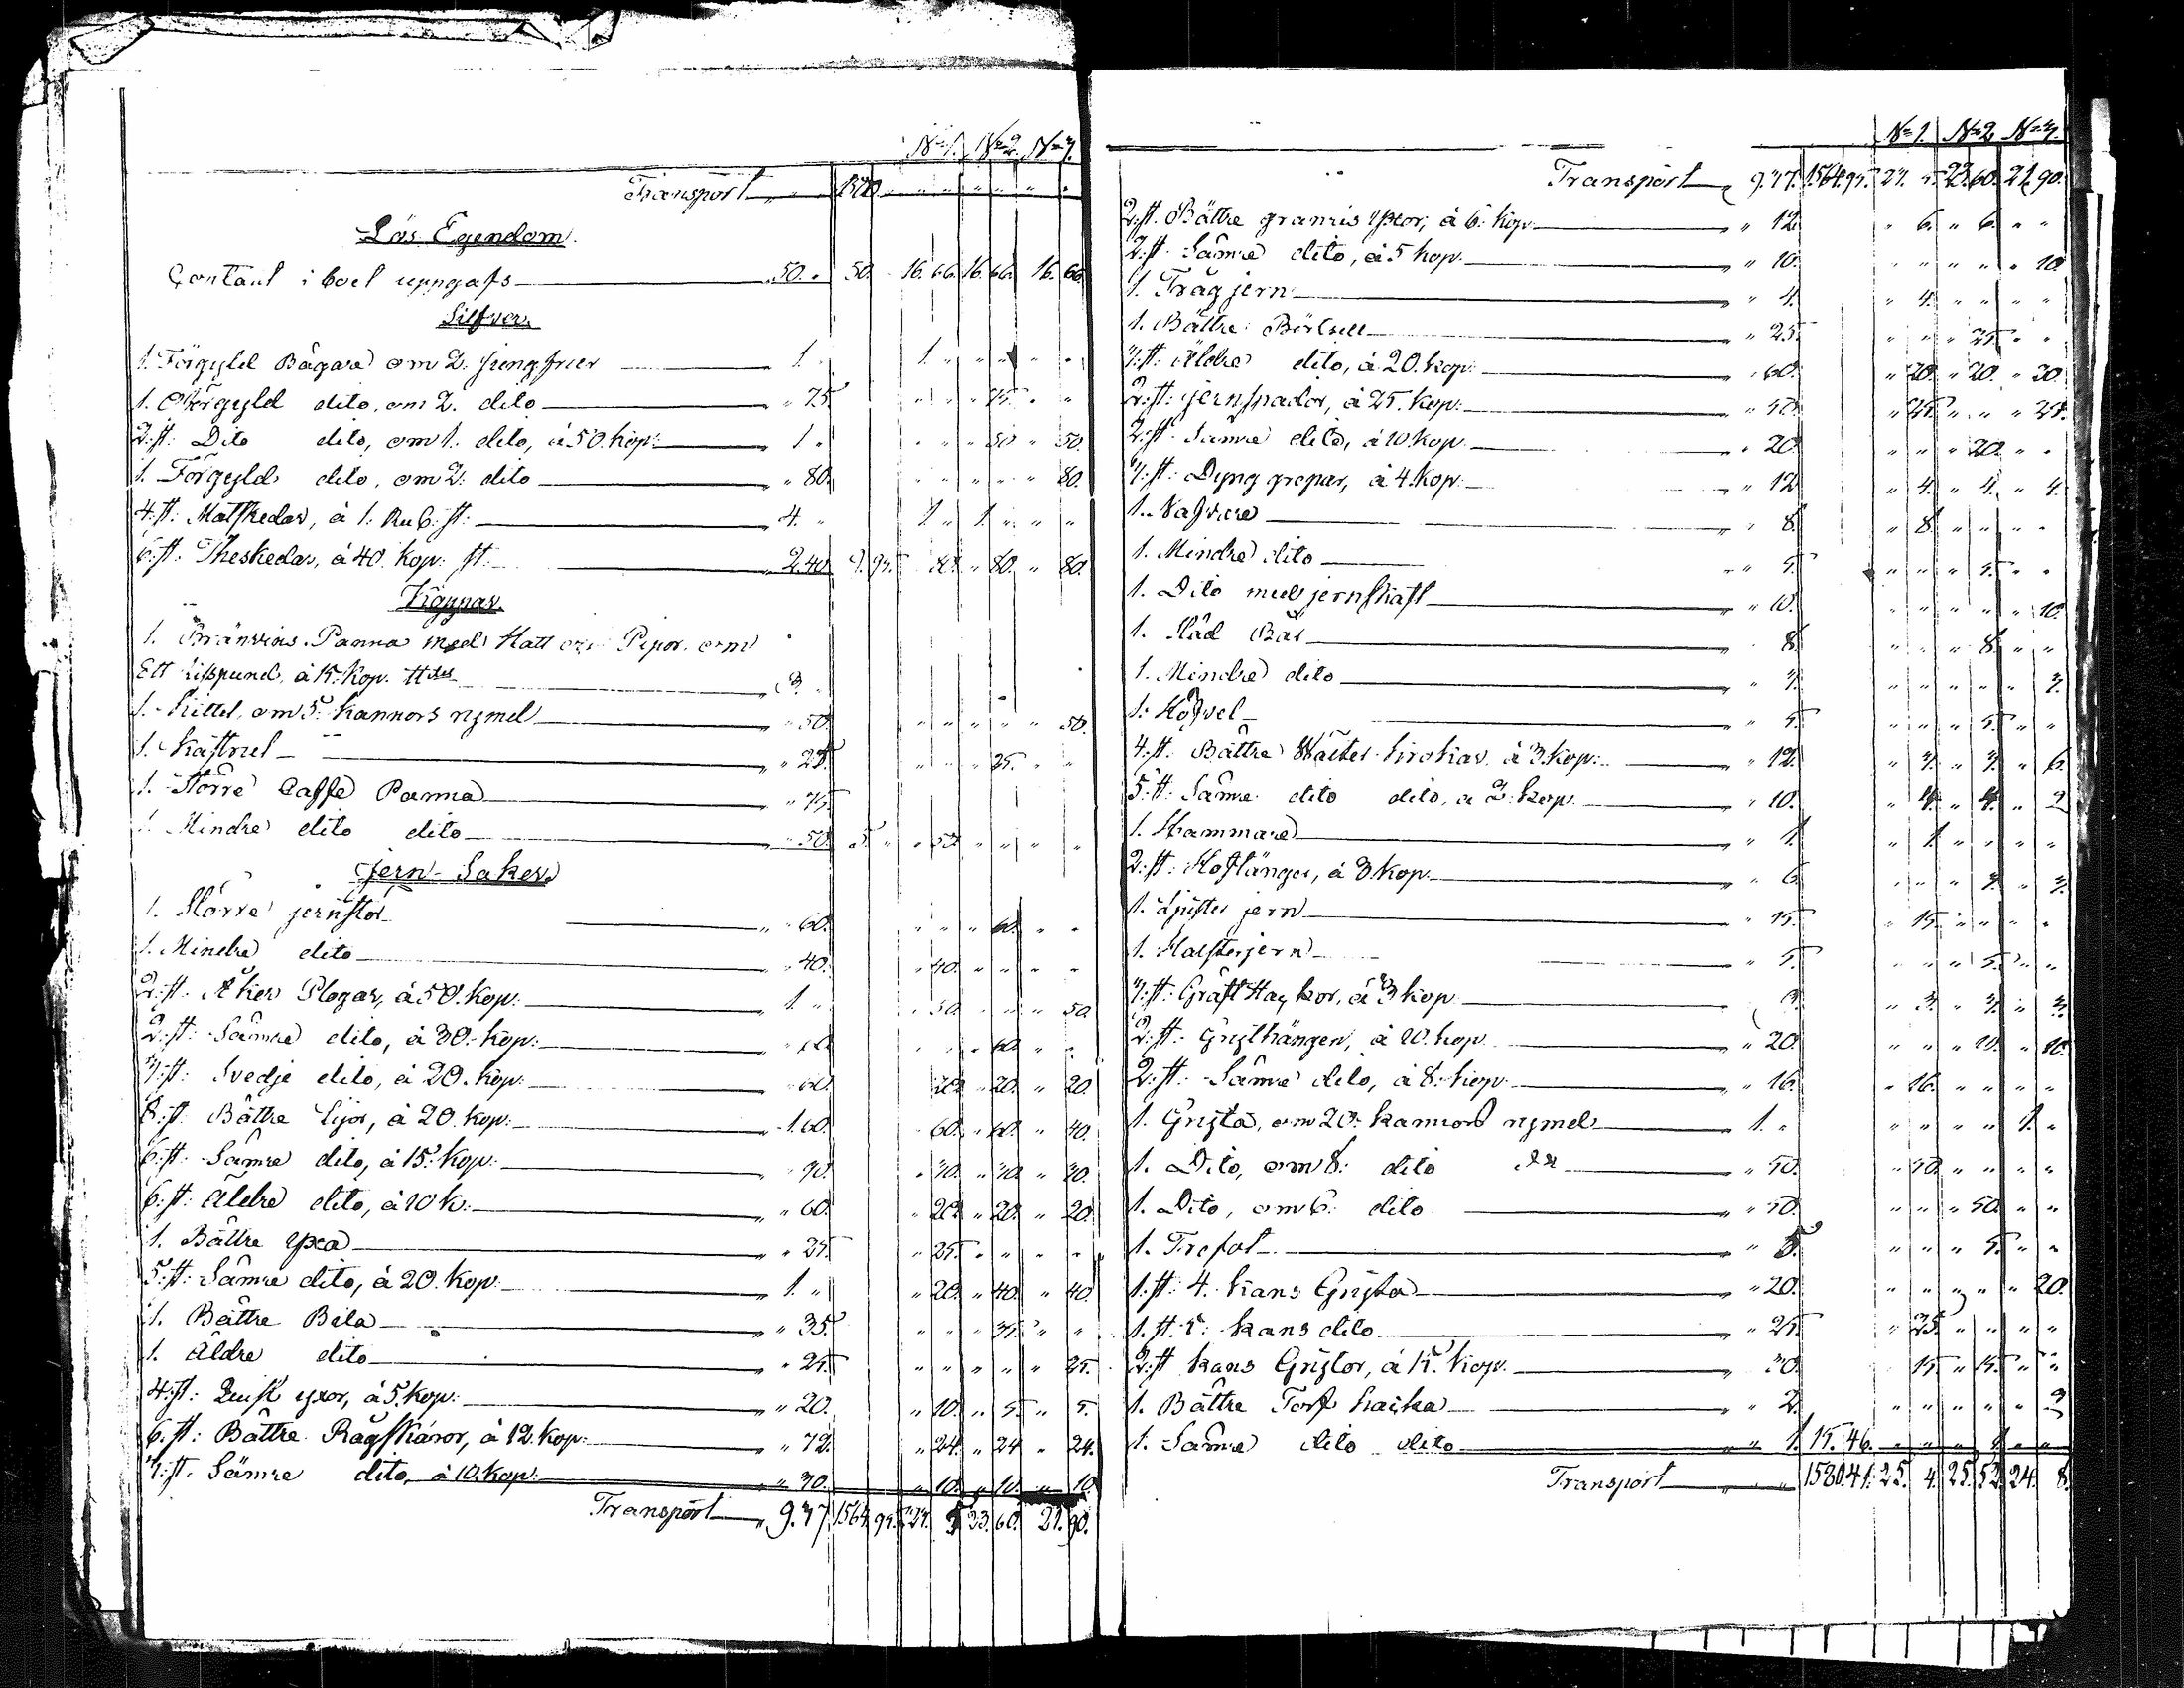 N=1. N=2. N=3.
Transport " 1500 " " " " " "
Lös Egendom.
Contant i boet uppgafs 50. " 50. 16. 66. 16. 66. 16. 66.
Silfver.
1. Förgyld Bägare om 2. jungfrur 1 " 1 " " " " "
1. Oförgyld dito, om 2. dito " 75. " " " 75. " "
2:st: Dito dito, om 1. dito, á 50. kop: 1 " " " " 50 " 50.
1. Förgyld dito, om 2. dito " 80. " " " " " 80.
4:st: Matskedar, á 1. Rub: st: 4. " 1 " 1. " " "
6:st. Theskedar, á 40 kop: st. 2.40. 9.95. 80. " 80. " 80.
Koppar.
1. Bränvins Panna med Hatt och Pipor om
Ett Lispund, á 15. kop. 3. "
1. Kittel, om 5. kannors rymd " 50. " " " " " 50.
1. Kastrul " 25. " " " 25. " "
1. Större Caffe Panna " 75
1. Mindre dito dito " 50. 5. " " 50. " " " "
Jern-Saker.
1. Större jernstör " 60. " " " 60. " "
1. Mindre dito " 40. " 40. " " " "
2:st. Åker Plogar, á 50. kop: 1 " " 50. " " " 50.
2:st: Sämre dito, á 30. kop: " 60. " " " 60. " "
3:st: Svedje dito, á 20. kop: " 60. 20. " 20. " 20.
8:st: Bättre Lijor, á 20. kop: 1.60. 60. " 60. " 40.
6:st. Sämre dito, á 15. kop: " 90. " 30. " 30. " 30.
6:st: Äldre dito, á 10 k: " 60. " 20. " 20. " 20.
1. Bättre Yxa " 25. " 25. " " " "
5:st: Sämre dito, á 20. kop: 1. " " 20. " 40. " 40.
1. Bättre Bila " 35. " " " 35. " "
1. Äldre dito " 25. " " " " " 25.
4:st: yxor, á 5. kop: " 20. " 10. " 5. " 5.
6:st: Bättre Rågskäror, á 12. kop: " 72. " 24. " 24. " 24.
3:st. Sämre dito, á 10. kop: " 30. " 10. " 10. " 10.
Transport 9.37. 1564. 95. 23. 60. 21. 90.
N=1. N=2. N=3.
Transport 9.37. 1564.95. 23.60. 21.90.
2:st. Bättre yxor, á 6. kop " 12. " 6. " 6. " "
2:st. Sämre dito, á 5 kop. " 10. " " " " " 10.
1. Tråg jern " 4. " 4. " " " "
1. Bättre " 25. " " " 25. " "
3:st: Äldre dito, á 20. kop: " 60. " 20. " 20. " 20.
2:st: jernspador, á 25. kop: " 50. " 25. " " " 25.
2:st. Sämre dito, á 10 kop. " 20. " " " 20. " "
3:st: Dyng grepar, á 4 kop: " 12. " 4. " 4. " 4.
1. Nafvare " 8. " 8. " " " "
1. Mindre dito " 5. " " " 5. " "
1. Dito med jernskaft " 10. " " " " " 10.
1. " 8. " " " 8. " "
1. Mindre dito " 3. " " " " " 3.
1. Höfvel " 5. " " " 5. " "
4:st. Bättre krokar, á 3. kop: " 12. " 3. " 3. " 6.
5:st: Sämre dito dito, á 2. kop. " 10. " 4. " 4. " 2
1. Hammare " 1. " 1. " " " "
2:st: Hoftänger, á 3 kop " 6. " " " 3. " 3.
1. Ljuster jern " 15. " 15. " " " "
1. Halsterjern " 5. " " " 5. " "
3:st: Gräft Hackor, á 3 kop 9. " 3. " 3. " 3.
2:st: Grythängen, á 10. kop. " 20. " " " 10. " 10.
2:st: Sämre dito, á 8. kop. " 16. " 16. " " " "
1. Gryta, om 20. kannors rymd 1. " " " " " 1. "
1. Dito, om 8. dito " 50. " 50. " " " "
1. Dito, om 6. dito " 50. " " " 50. " "
1. Trefot " 5. " " " 5. " "
1.st: 4. kans Gryta " 20. " " " " " 20.
1.st. kans dito " 25. " 25. " " " "
2:st kans Grytor, á 15. kop. " 30. 15. " 15. " "
1. Bättre Torf hacka " 2. " " " " " 2
1. Sämre dito dito " 1. 15. 46. " " " 1. " "
Transport 1580.41. 25. 4. 25. 52. 24. 8.